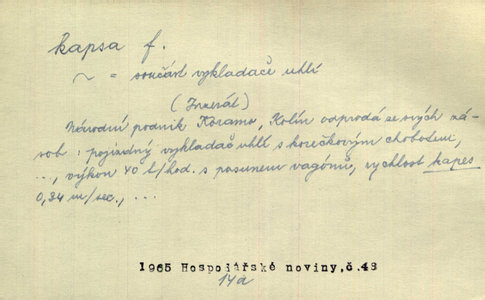 kapsa f.
~ = součást vykladače uhlí
(Inzerát)
Národní podnik Koramo, Kolín odprodá ze svých zá-
sob: pojízdný vykladač uhlí s korečkovým chobotem,
..., výkon 40 t/hod. s posunem vagónů, rychlost kapes
0,34 m/sec., ...
1965 Hospojářské noviny,č.43
14a